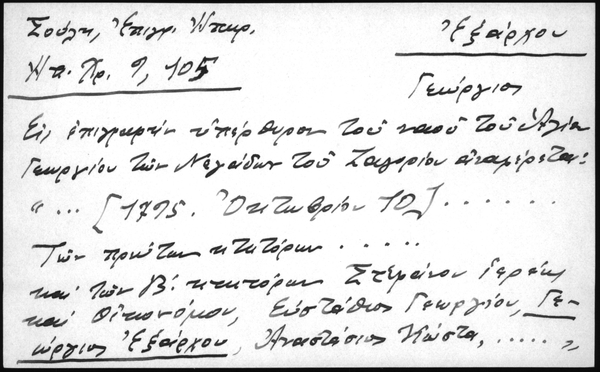 Σούλη, Ἐπιγρ. Ἠπειρ.
Ἐξάρχου
Ἠπ. Χρ. 9, 105
Γεώργιος
Εἰς ἐπιγραφὴν ὑπέρθυρον τοῦ ναοῦ τοῦ Ἁγίου
Γεωργίου τῶν Νεγάδων τοῦ Ζαγορίου ἀναφέρεται:
"... [1795. Ὀκτωβρίου 10] .......
Τῶν πρώτων κτιτόρων .....
καὶ τῶν β΄. κτιτόρων Στεφάνου ἱερέως
καὶ Οἰκονόμου, Εὐστάθιος Γεωργίου, Γε-
ώργιος Ἐξάρχου, Ἀναστάσιος Κώστα, ..... "